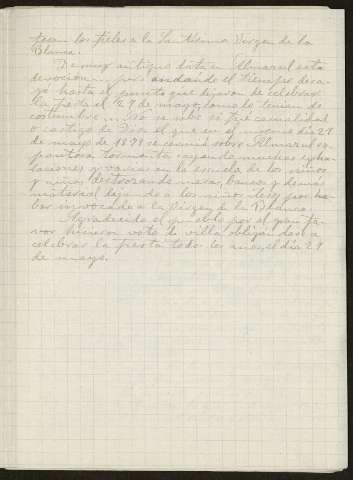 fesan los fieles a la Santísima Virgen de la
Blanca.
De muy antiguo data en Almarul esta
devoción, pero andando el tiempo deca-
yó hasta el punto que dejaron de celebrar
la fiesta el 29 de mayo, como lo tenían de
costumbre... No se sabe si fué casualidad
o castigo de Dios el que en el mismo día 29
de mayo de 18 se cernió sobre Almarul es-
pantosa tormenta cayendo muchas exha-
laciones y varias en la escuela de los niños
y niñas destrozando mesas, bancos y demás
material dejando a los niños por ha-
ber invocado a la Virgen de la Blanca.
Agradecido el pueblo por el gran fa-
vor hicieron voto de villa obligándose a
celebrar la fiesta todos los años, el día 29
de mayo.